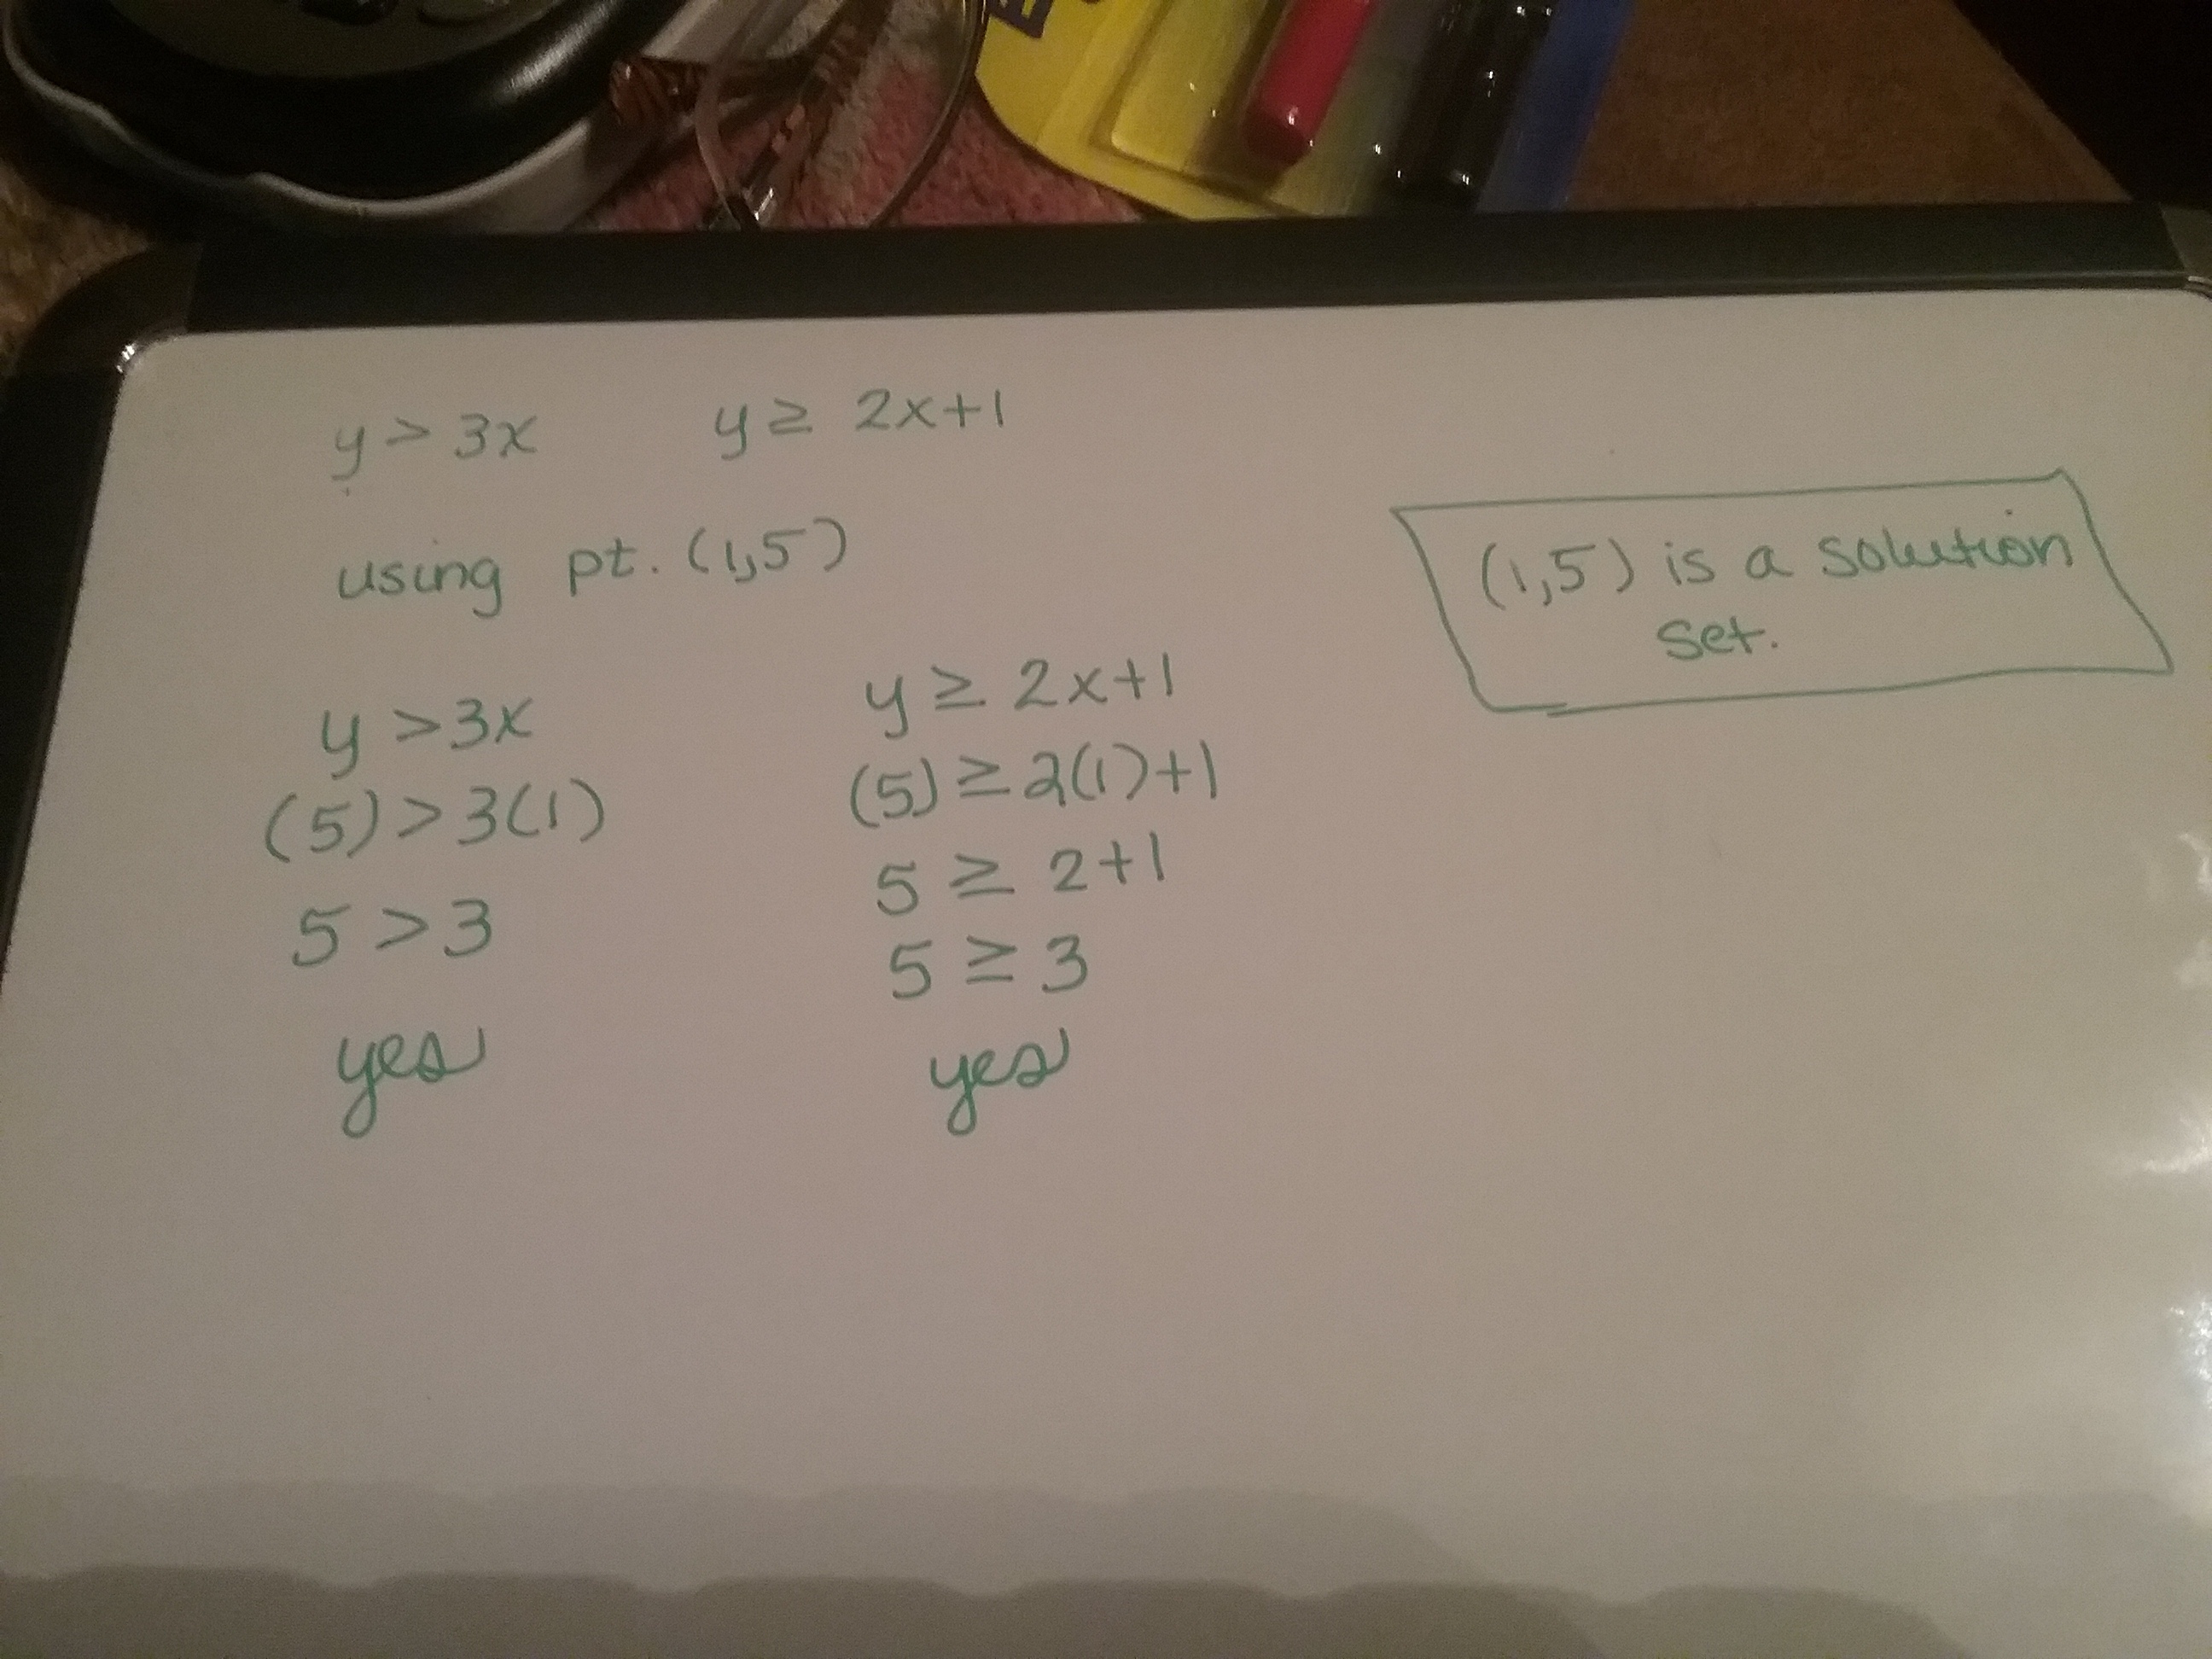 y > 3x y ≥ 2x+1
using pt. (1,5)
(1,5) is a solution
set.
y > 3x
(5) > 3(1)
5 > 3
yes
y ≥ 2x+1
(5) ≥ 2(1)+1
5 ≥ 2+1
5 ≥ 3
yes